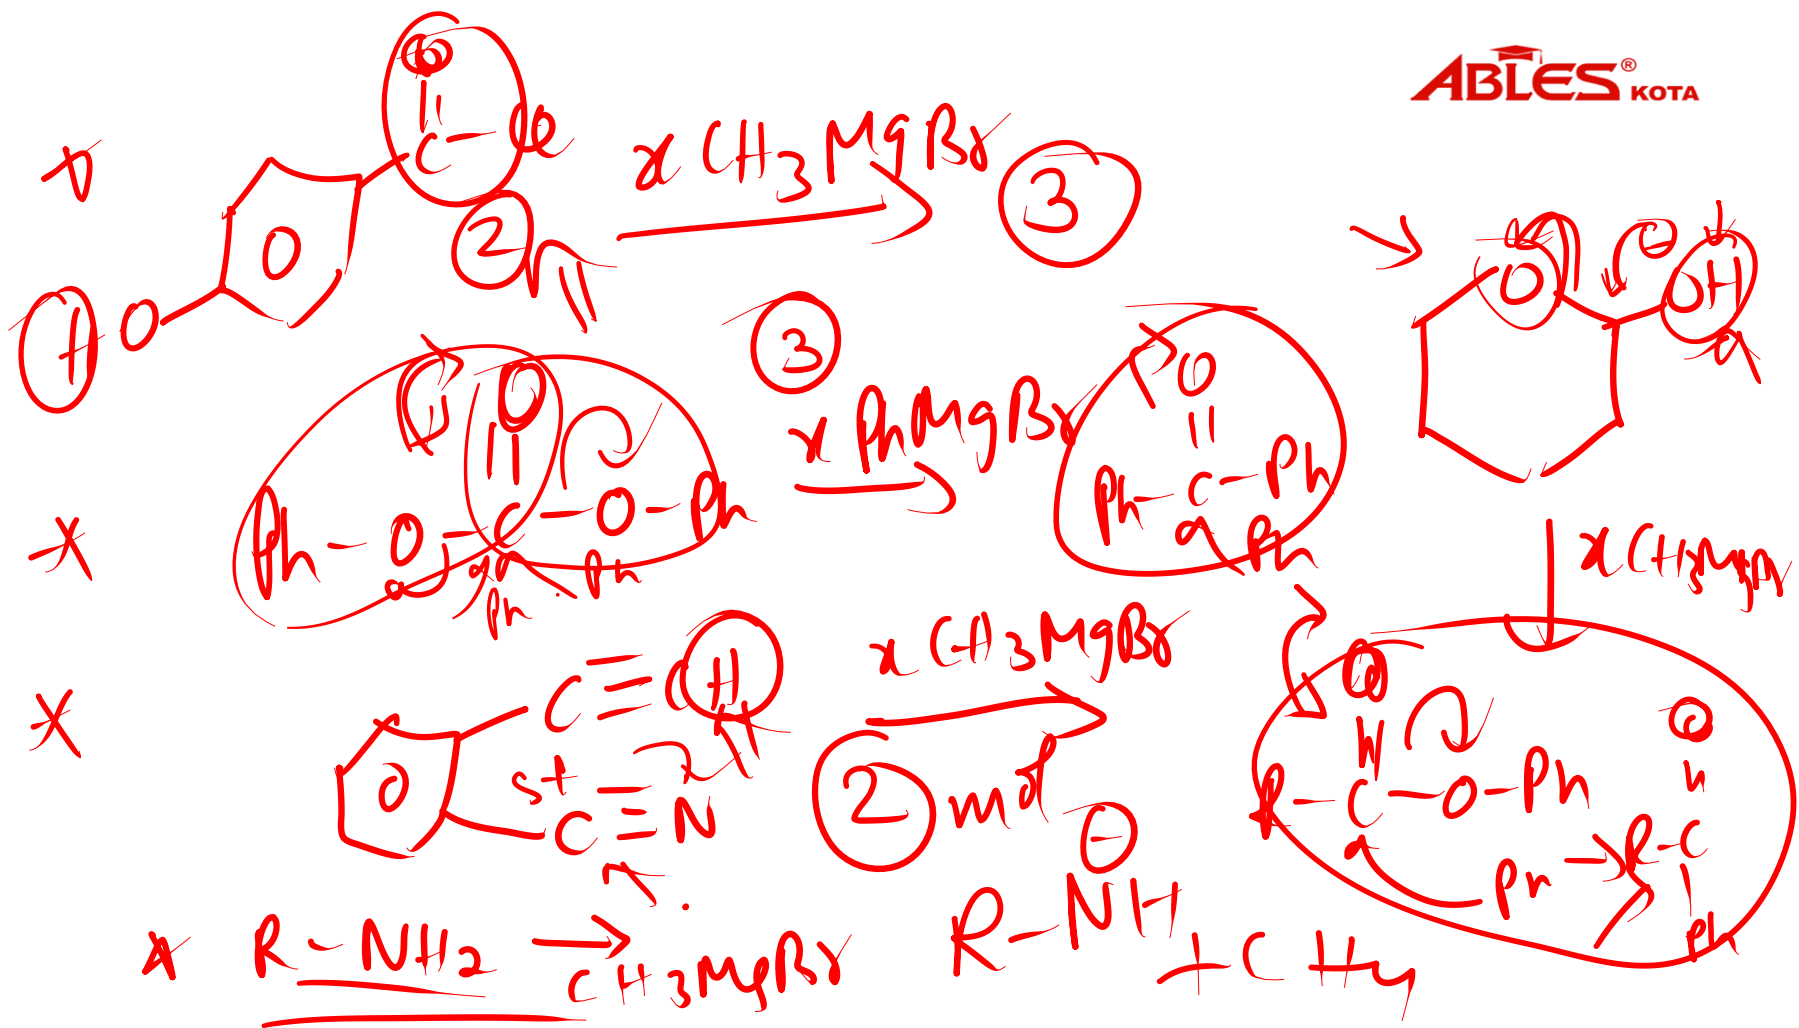 ABLES® KOTA
O
C – Cl
x CH3MgBr
3
2
O
H O
O
OH
3
O
x PhMgBr
O
Ph – O – C – O – Ph
Ph
Ph
Ph – C – Ph
Ph
x CH3MgBr
C ≡ C H
x CH3MgBr
O
δ+
C ≡ N
2 mol
O
R – C – O – Ph
Ph → R – C
Ph
R – NH2 →
CH3MgBr
R – NH
+ CH4